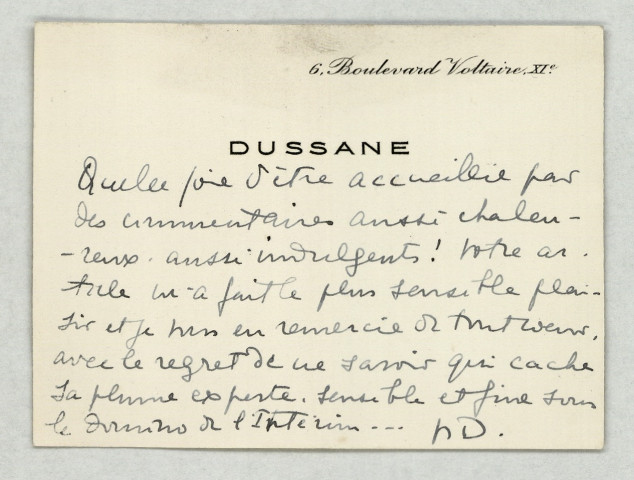 6, Boulevard Voltaire, XIe
DUSSANE
Quelle joie d'être accueillie par
des commentaires aussi chaleu-
-reux. aussi indulgents ! Votre ar-
ticle m'a fait le plus sensible plai-
sir et je vous en remercie de tout coeur,
avec le regret de ne savoir qui cache
sa plume experte. sensible et fine sous
le Domino de l'Intérim ---
D.